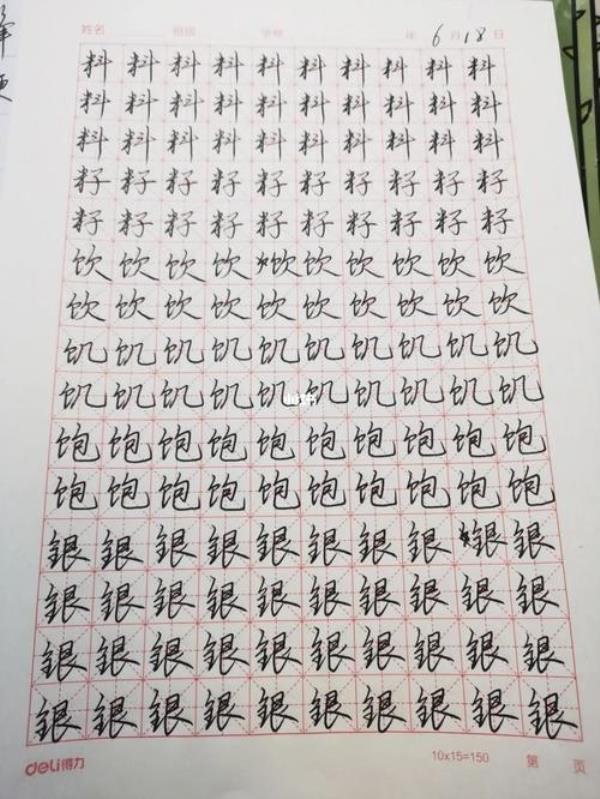 姓名 班级 学号 年 6 月 18 日
料料料料料料料料料料
料料料料料料料料料料
料料料料料料料料料料
籽籽籽籽籽籽籽籽籽籽
籽籽籽籽籽籽籽籽籽籽
饮饮饮饮饮饮饮饮饮饮
饮饮饮饮饮饮饮饮饮饮
饥饥饥饥饥饥饥饥饥饥
饥饥饥饥饥饥饥饥饥饥
饱饱饱饱饱饱饱饱饱饱
饱饱饱饱饱饱饱饱饱饱
银银银银银银银银银银
银银银银银银银银银银
银银银银银银银银银银
银银银银银银银银银银
deli得力 10x15=150 第 页